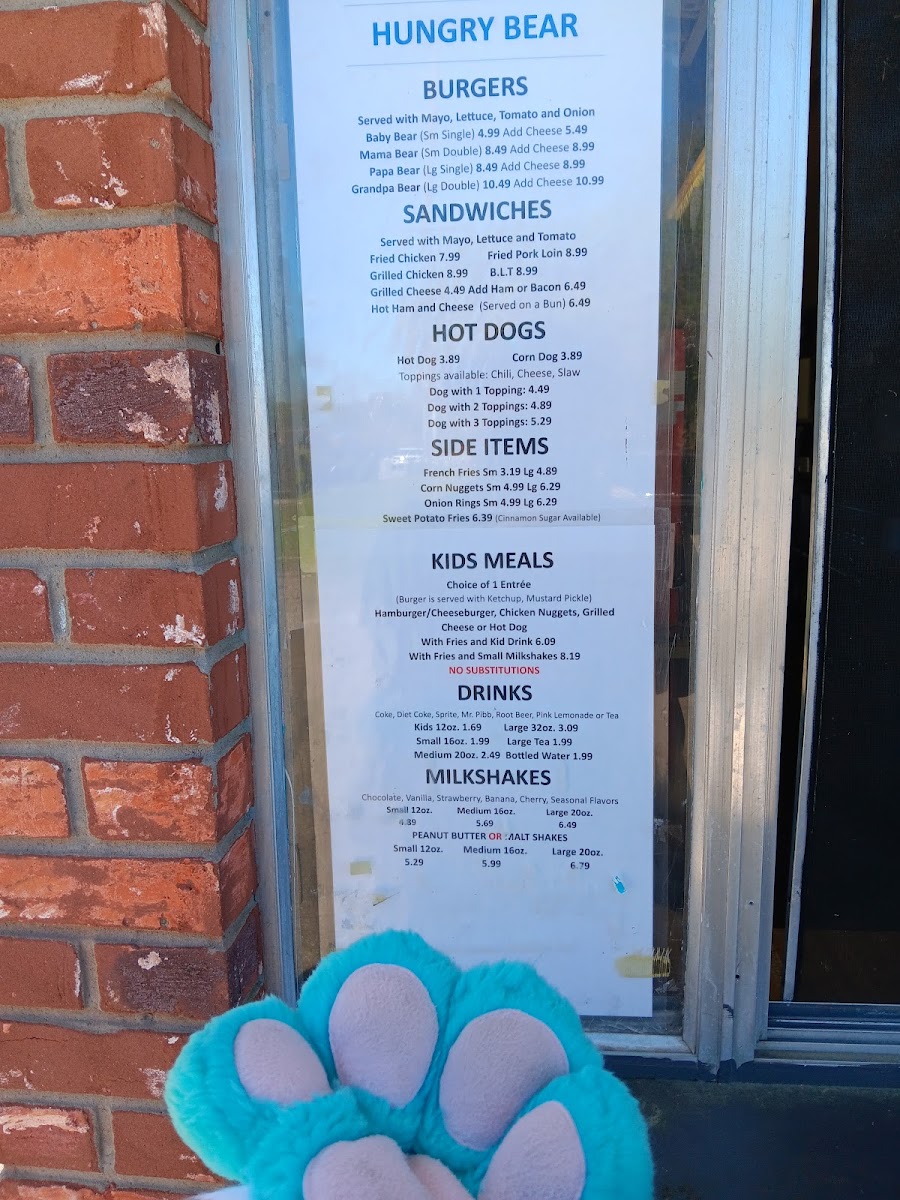 HUNGRY BEAR
BURGERS
Served with Mayo, Lettuce, Tomato and Onion
Baby Bear (Sm Single) 4.99 Add Cheese 5.49
Mama Bear (Sm Double) 8.49 Add Cheese 8.99
Papa Bear (Lg Single) 8.49 Add Cheese 8.99
Grandpa Bear (Lg Double) 10.49 Add Cheese 10.99
SANDWICHES
Served with Mayo, Lettuce and Tomato
Fried Chicken 7.99 Fried Pork Loin 8.99
Grilled Chicken 8.99 B.L.T 8.99
Grilled Cheese 4.49 Add Ham or Bacon 6.49
Hot Ham and Cheese (Served on a Bun) 6.49
HOT DOGS
Hot Dog 3.89 Corn Dog 3.89
Toppings available: Chili, Cheese, Slaw
Dog with 1 Topping: 4.49
Dog with 2 Toppings: 4.89
Dog with 3 Toppings: 5.29
SIDE ITEMS
French Fries Sm 3.19 Lg 4.89
Corn Nuggets Sm 4.99 Lg 6.29
Onion Rings Sm 4.99 Lg 6.29
Sweet Potato Fries 6.39 (Cinnamon Sugar Available)
KIDS MEALS
Choice of 1 Entrée
(Burger is served with Ketchup, Mustard Pickle)
Hamburger/Cheeseburger, Chicken Nuggets, Grilled
Cheese or Hot Dog
With Fries and Kid Drink 6.09
With Fries and Small Milkshakes 8.19
NO SUBSTITUTIONS
DRINKS
Coke, Diet Coke, Sprite, Mr. Pibb, Root Beer, Pink Lemonade or Tea
Kids 12oz. 1.69 Large 32oz. 3.09
Small 16oz. 1.99 Large Tea 1.99
Medium 20oz. 2.49 Bottled Water 1.99
MILKSHAKES
Chocolate, Vanilla, Strawberry, Banana, Cherry, Seasonal Flavors
Small 12oz. Medium 16oz. Large 20oz.
5.69 6.49
PEANUT BUTTER OR MALT SHAKES
Small 12oz. Medium 16oz. Large 20oz.
5.29 5.99 6.79